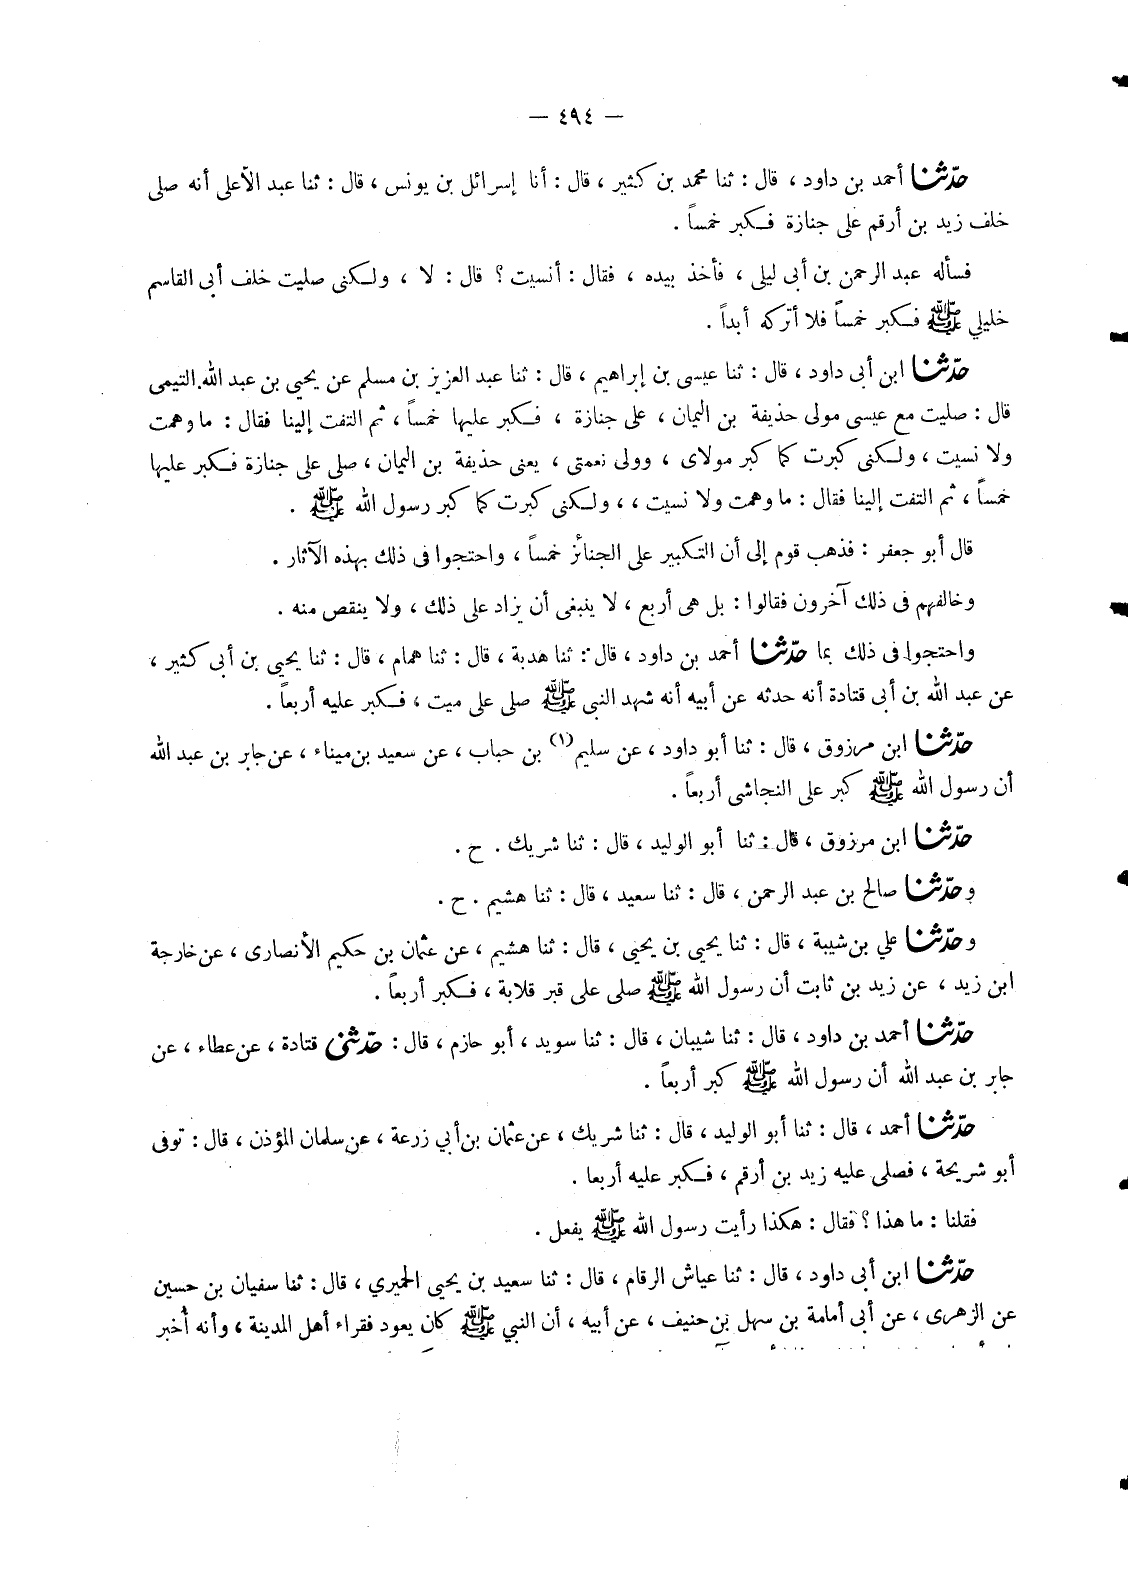 — ٤٩٤ —
حدّثنا أحمد بن داود ، قال : ثنا محمد بن كثير ، قال : أنا إسرائل بن يونس ، قال : ثنا عبد الأعلى أنه صلى
خلف زيد بن أرقم على جنازة فكبر خمساً .
فسأله عبد الرحمن بن أبى ليلى ، فأخذ بيده ، فقال : أنسيت ؟ قال : لا ، ولكنى صليت خلف أبى القاسم
خليلي ﷺ فكبر خمساً فلا أتركه أبداً .
حدّثنا ابن أبى داود ، قال : ثنا عيسى بن إبراهيم ، قال : ثنا عبد العزيز بن مسلم عن يحيى بن عبد الله التيمى
قال : صليت مع عيسى مولى حذيفة بن اليمان ، على جنازة ، فكبر عليها خمساً ، ثم التفت إلينا فقال : ما وهمت
ولا نسيت ، ولكنى كبرت كما كبر مولاى ، وولى نعمتى ، يعنى حذيفة بن اليمان ، صلى على جنازة فكبر عليها
خمساً ، ثم التفت إلينا فقال : ما وهمت ولا نسيت ، ، ولكنى كبرت كما كبر رسول الله ﷺ .
قال أبو جعفر : فذهب قوم إلى أن التكبير على الجنائز خمساً ، واحتجوا فى ذلك بهذه الآثار .
وخالفهم فى ذلك آخرون فقالوا : بل هى أربع ، لا ينبغى أن يزاد على ذلك ، ولا ينقص منه .
واحتجوا فى ذلك بما حدّثنا أحمد بن داود ، قال : ثنا هدبة ، قال : ثنا همام ، قال : ثنا يحيى بن أبى كثير ،
عن عبد الله بن أبى قتادة أنه حدثه عن أبيه أنه شهد النبى ﷺ صلى على ميت ، فكبر عليه أربعاً .
حدّثنا ابن مرزوق ، قال : ثنا أبو داود ، عن سليم(١) بن حباب ، عن سعيد بن ميناء ، عن جابر بن عبد الله
أن رسول الله ﷺ كبر على النجاشى أربعاً .
حدّثنا ابن مرزوق ، قال : ثنا أبو الوليد ، قال : ثنا شريك . ح .
وحدّثنا صالح بن عبد الرحمن ، قال : ثنا سعيد ، قال : ثنا هشيم . ح .
وحدّثنا علي بن شيبة ، قال : ثنا يحيى بن يحيى ، قال : ثنا هشيم ، عن عثمان بن حكيم الأنصارى ، عن خارجة
ابن زيد ، عن زيد بن ثابت أن رسول الله ﷺ صلى على قبر قلابة ، فكبر أربعاً .
حدّثنا أحمد بن داود ، قال : ثنا شيبان ، قال : ثنا سويد ، أبو حازم ، قال : حدّثنى قتادة ، عن عطاء ، عن
جابر بن عبد الله أن رسول الله ﷺ كبر أربعاً .
حدّثنا أحمد ، قال : ثنا أبو الوليد ، قال : ثنا شريك ، عن عثمان بن أبي زرعة ، عن سلمان المؤذن ، قال : توفى
أبو شريحة ، فصلى عليه زيد بن أرقم ، فكبر عليه أربعا .
فقلنا : ما هذا ؟ فقال : هكذا رأيت رسول الله ﷺ يفعل .
حدّثنا ابن أبى داود ، قال : ثنا عياش الرقام ، قال : ثنا سعيد بن يحيى الحميري ، قال : ثنا سفيان بن حسين
عن الزهرى ، عن أبى أمامة بن سهل بن حنيف ، عن أبيه ، أن النبي ﷺ كان يعود فقراء أهل المدينة ، وأنه أخبر